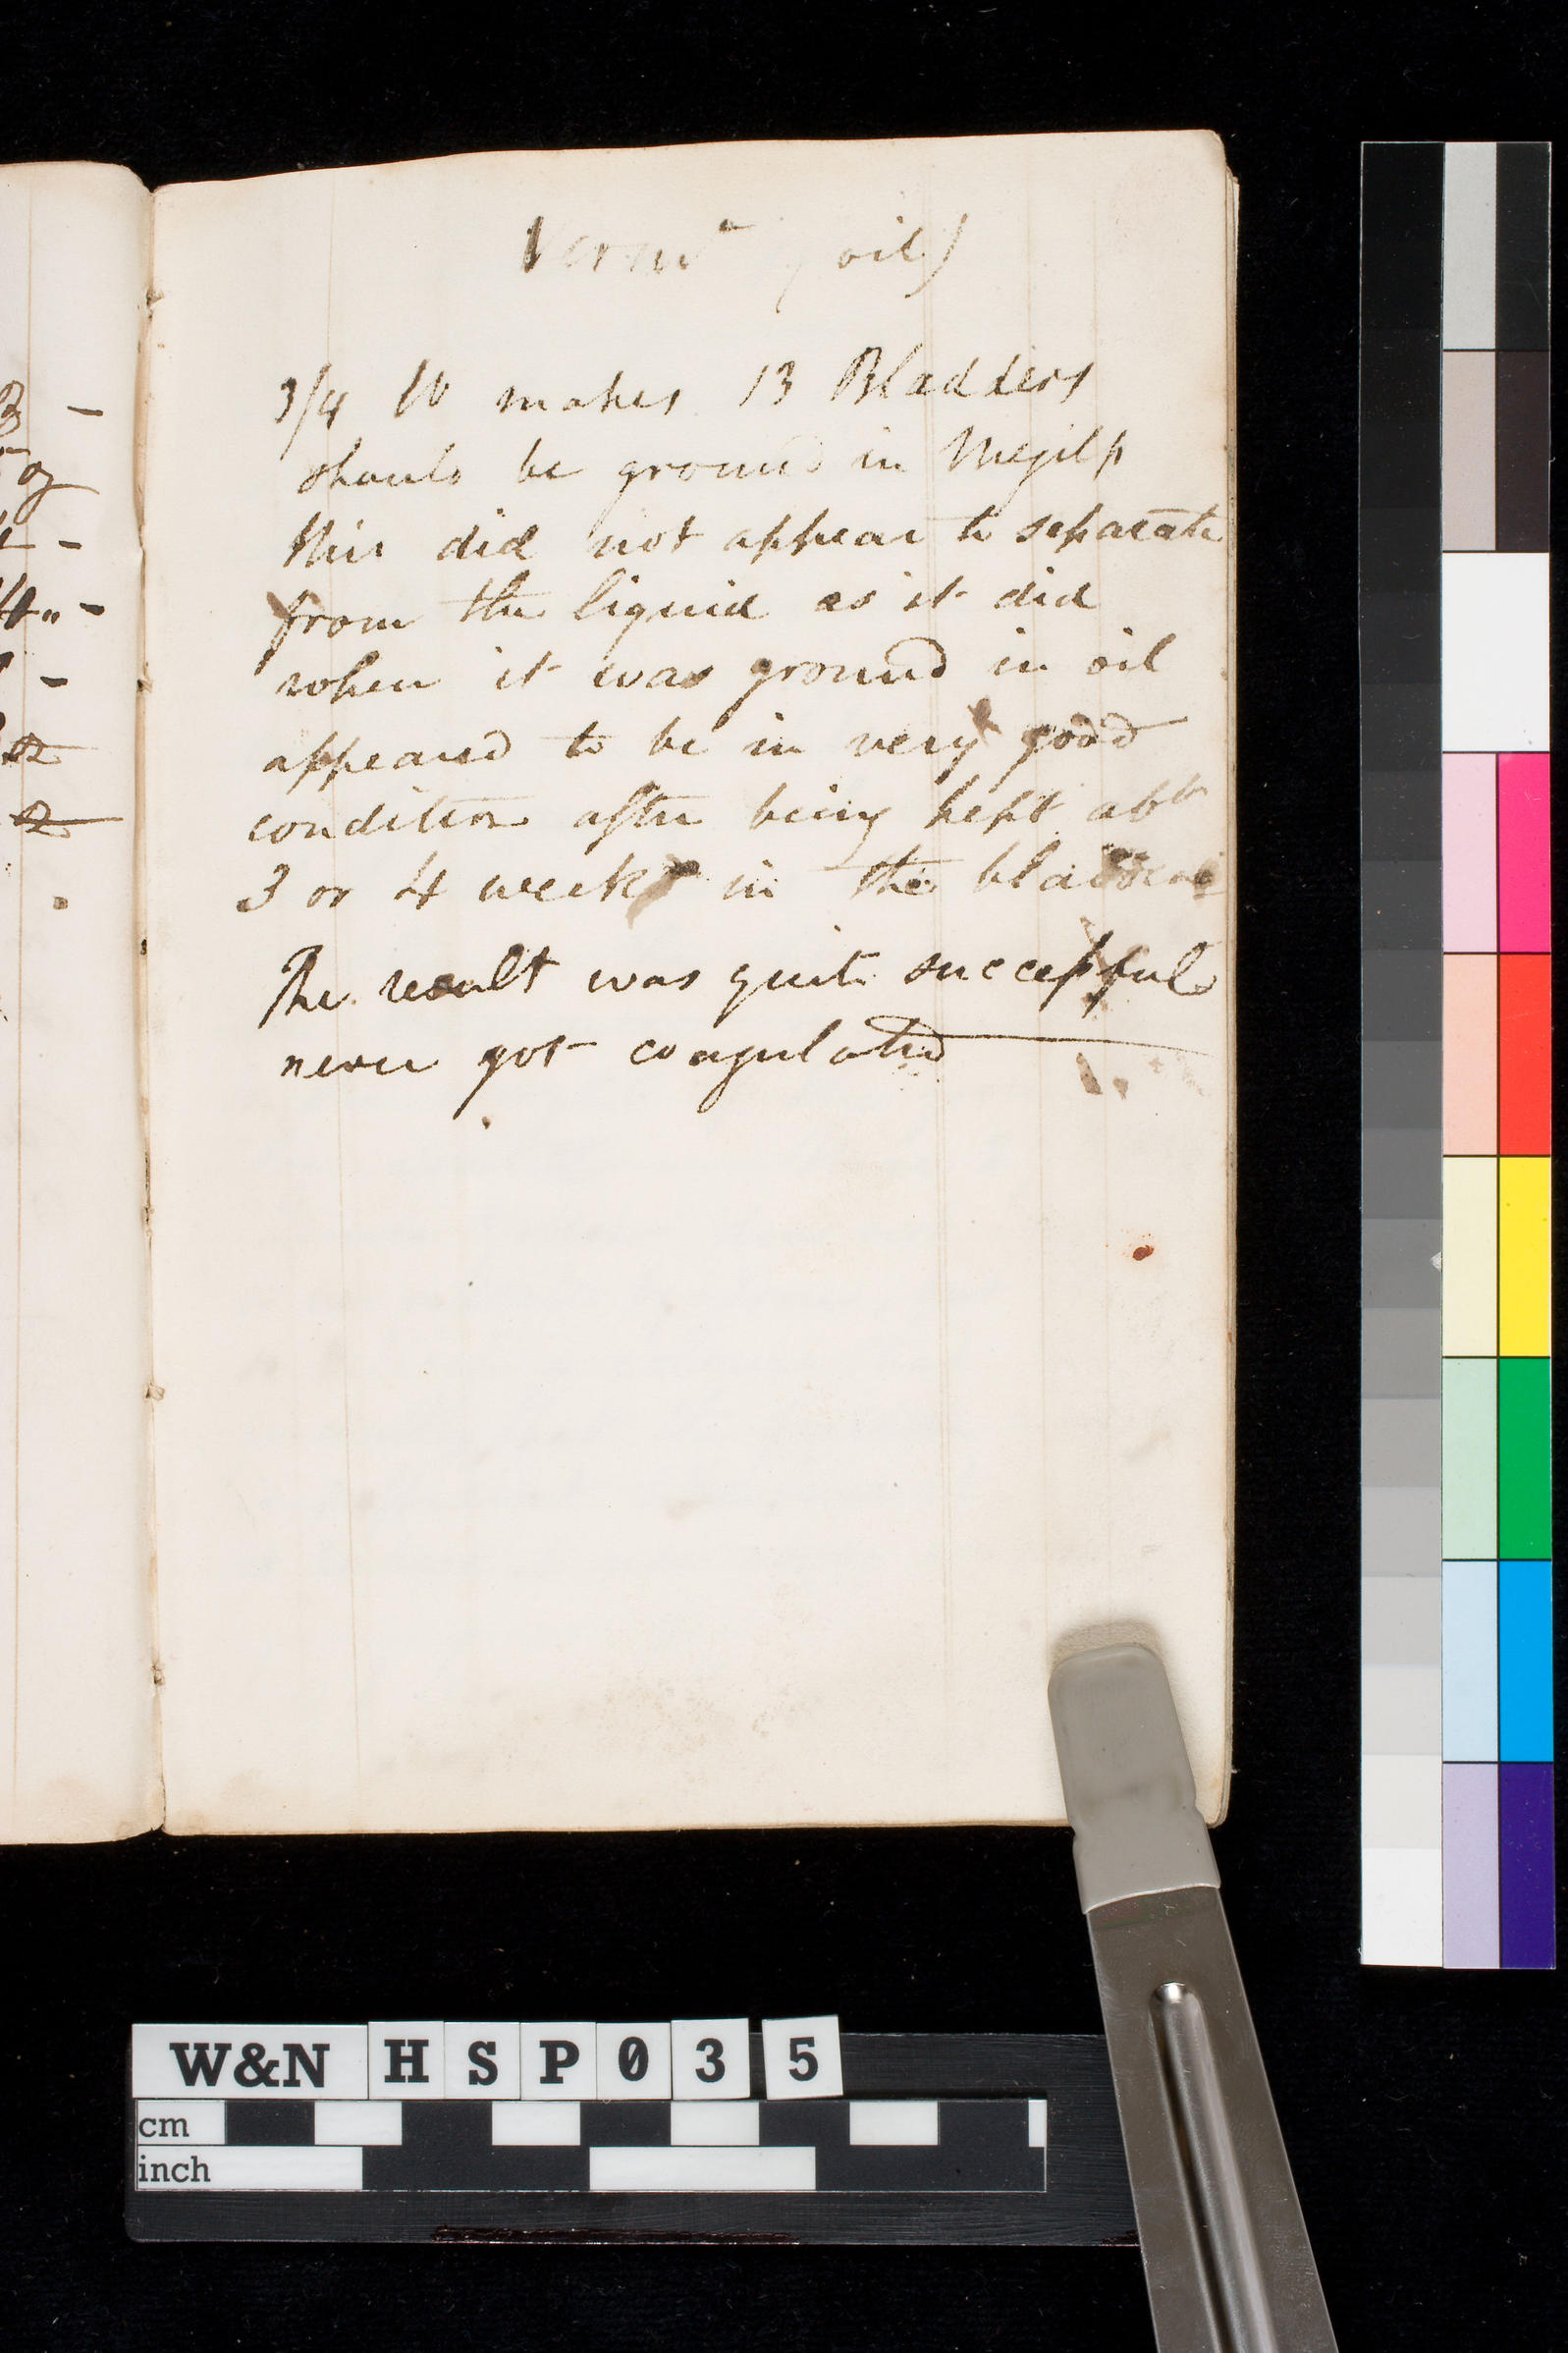 Vermn (oil)
3/4 lb makes 13 Bladders
should be ground in Megilp
this did not appear to separate
from the liquid as it did
when it was ground in oil
appeared to be in very good
condition after being kept abt
3 or 4 weeks in the bladders
The result was quite successful
never got coagulated
oz
2
2
W&N HSP035
cm
inch